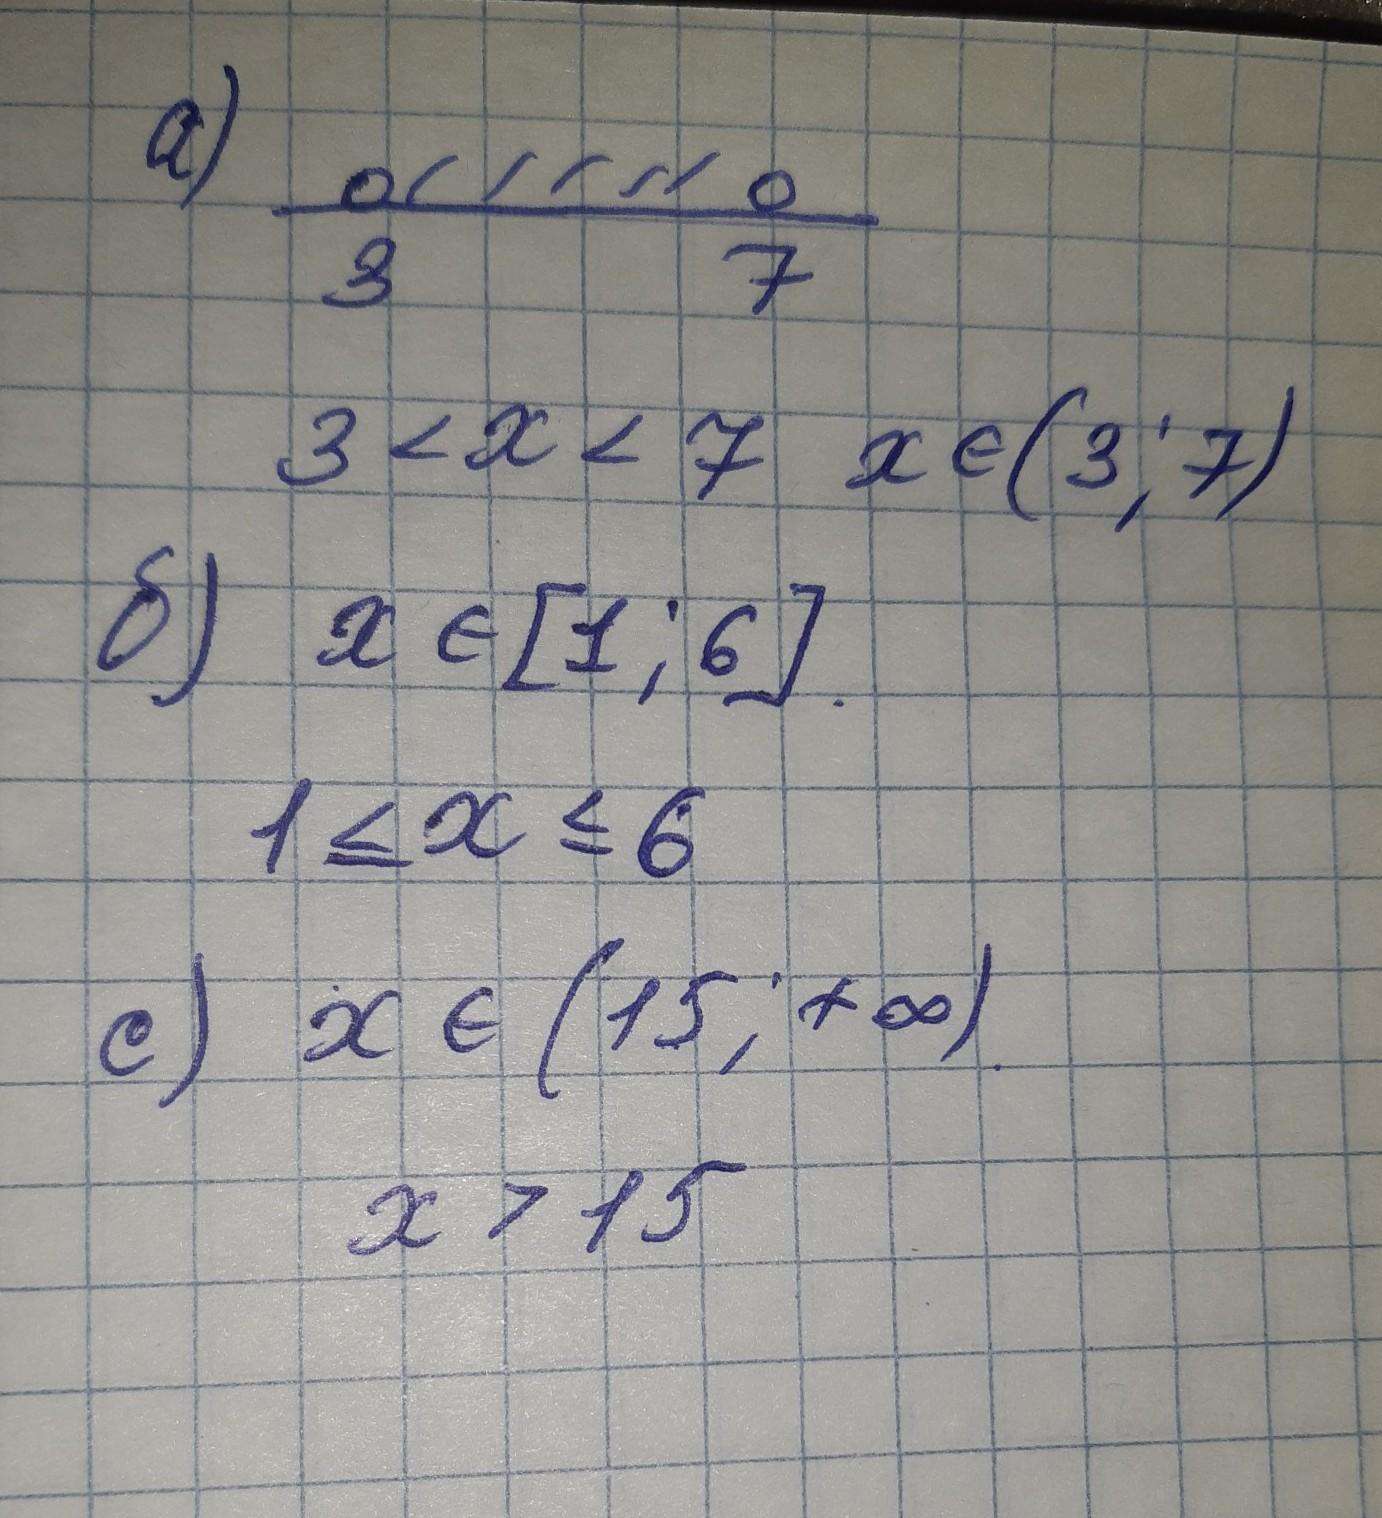 а)
3 7
3 < x < 7 x ∈ (3; 7)
б) x ∈ [1; 6].
1 ≤ x ≤ 6
с) x ∈ (15; +∞).
x > 15